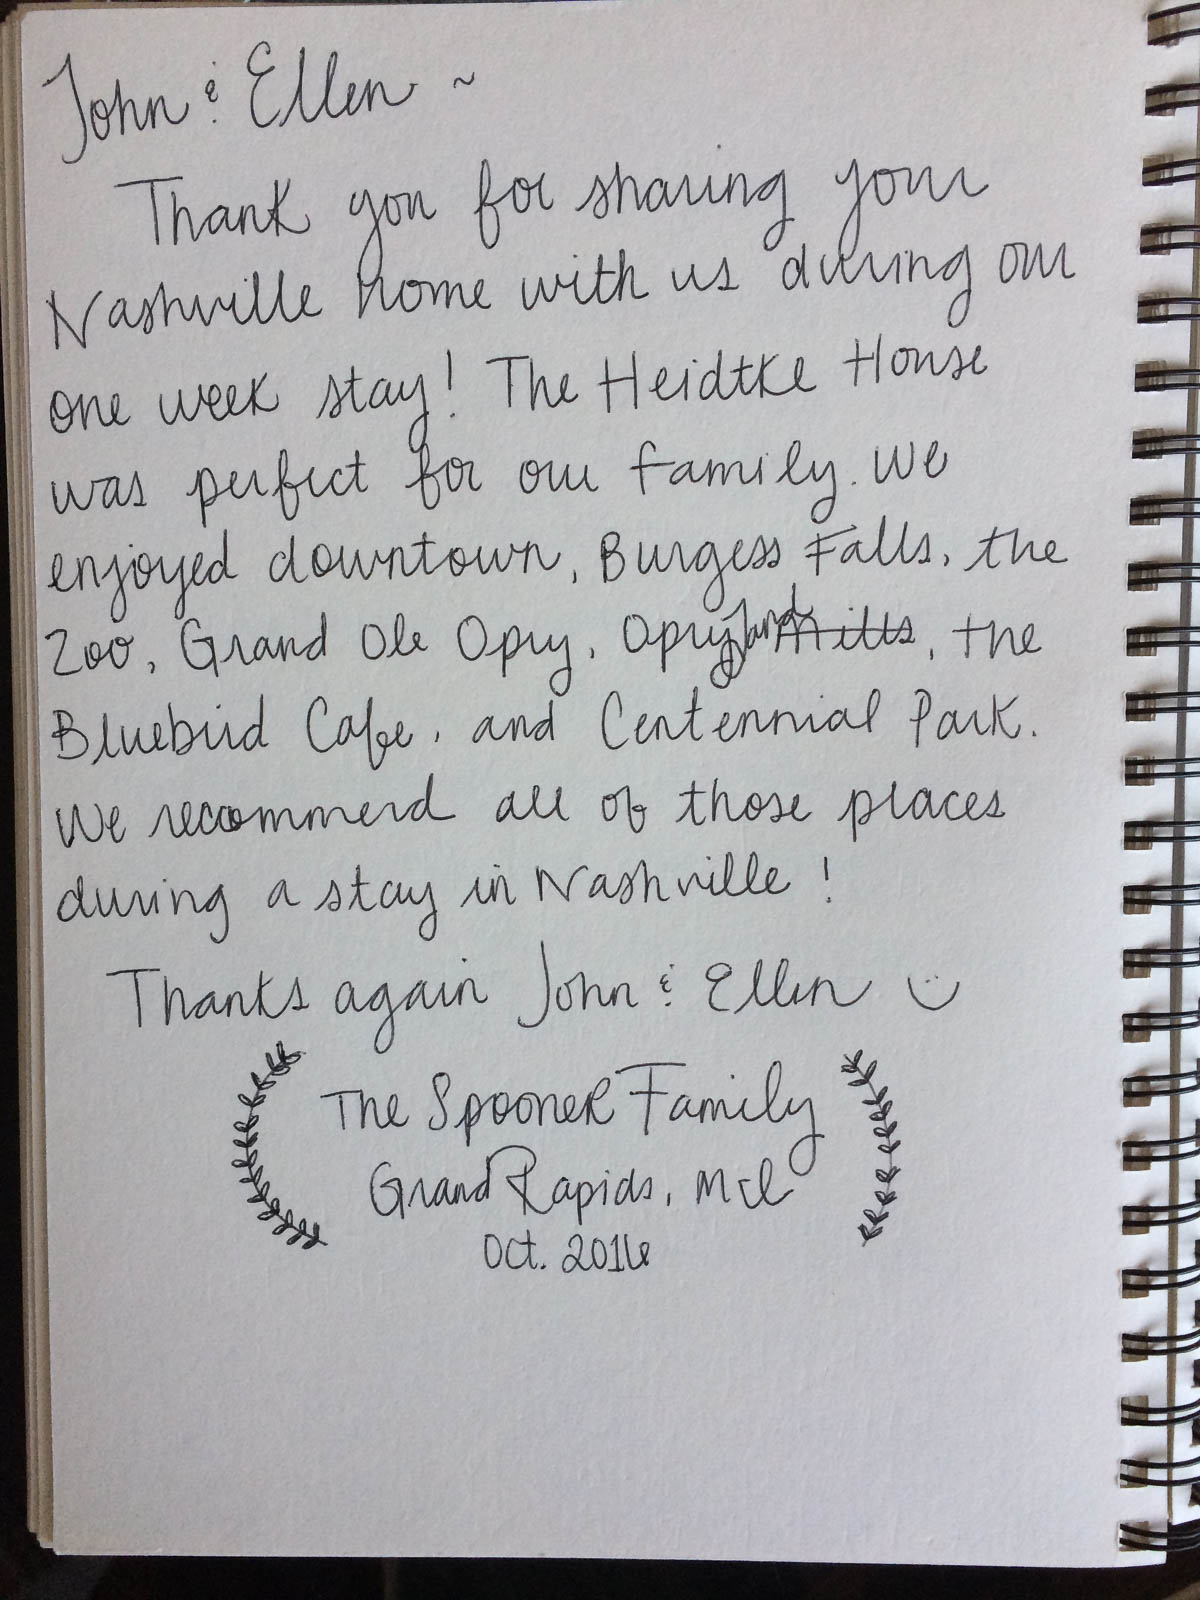 John & Ellen ~
Thank you for sharing your
Nashville home with us during our
one week stay! The Heidtke House
was perfect for our family. We
enjoyed downtown, Burgess Falls, the
Zoo, Grand Ole Opry, Opryland Mills, the
Bluebird Cafe, and Centennial Park.
We recommend all of those places
during a stay in Nashville!
Thanks again John & Ellen :)
The Spooner Family
Grand Rapids, MI
Oct. 2016